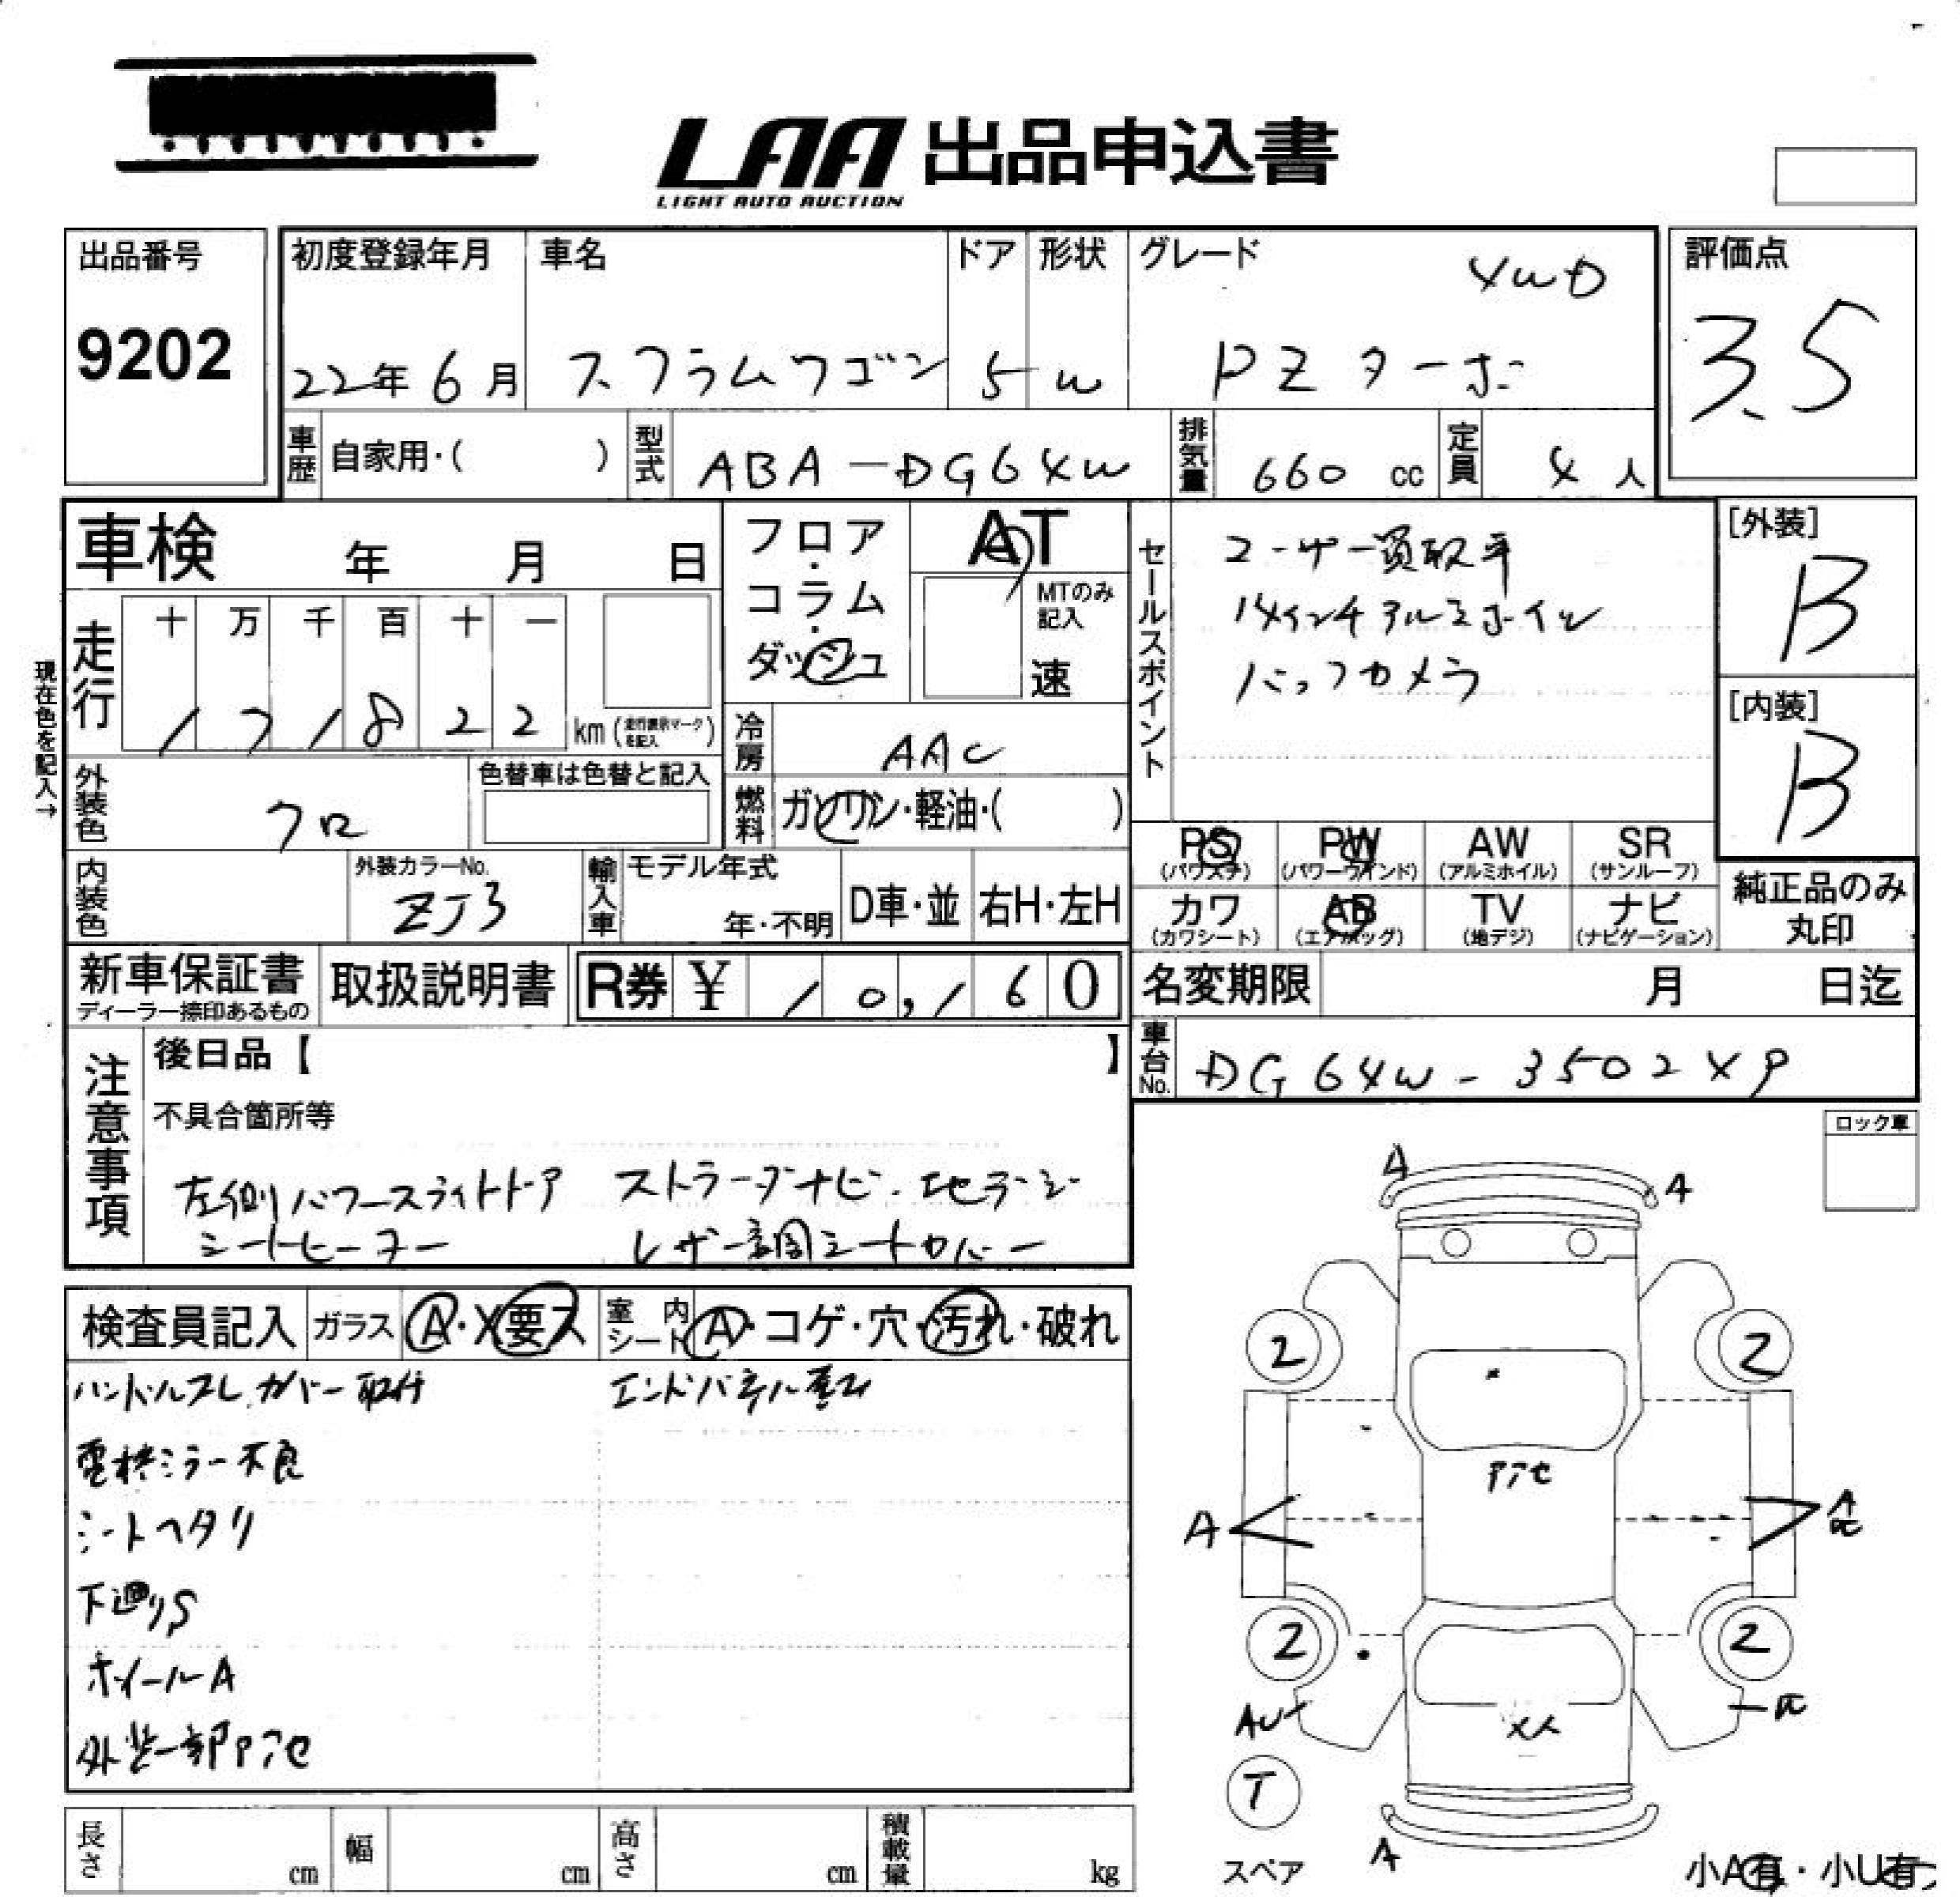 LAA 出品申込書
LIGHT AUTO AUCTION
出品番号
9202
初度登録年月
22年 6月
車名
スフラムワゴン
ドア
5
形状
W
グレード
4WD
PZターボ
評価点
3.5
車歴 自家用・( )
型式 ABA-DG64W
排気量 660 cc
定員 4 人
車検 年 月 日
フロア・コラム・ダッシュ
AT
MTのみ記入
速
セールスポイント
ユーザー買取車
14インチアルミホイル
バックカメラ
[外装]
B
[内装]
B
現在色を記入→
走行 十 万 千 百 十 一
1 7 1 8 2 2 km (走行表示マークを記入)
冷房 AAC
外装色 クロ
色替車は色替と記入
燃料 ガソリン・軽油・( )
内装色
外装カラーNo.
ZJ3
輸入車 モデル年式
年・不明
D車・並
右H・左H
PS (パワステ)
PW (パワーウインド)
AW (アルミホイル)
SR (サンルーフ)
カワ (カワシート)
AB (エアバッグ)
TV (地デジ)
ナビ (ナビゲーション)
純正品のみ丸印
新車保証書
ディーラー捺印あるもの
取扱説明書
R券 ¥ 10,160
名変期限 月 日迄
車台No. DG64W-350249
注意事項
後日品【 】
不具合箇所等
左側パワースライドドア ストラーダナビ・地デジ
シートヒーター レザー調シートカバー
ロック車
検査員記入 ガラス A・X要ス 室内シート A・コゲ・穴・汚れ・破れ
ハンドルスレ カバー取付 エンドパネル歪み
電格ミラー不良
シートヘタリ
下廻りS
ホイールA
外装一部Pアセ
A
A
2
2
Pアセ
A
A
2
2
AU
XX
T
スペア
A
小A有・小U有
長さ cm 幅 cm 高さ cm 積載量 kg